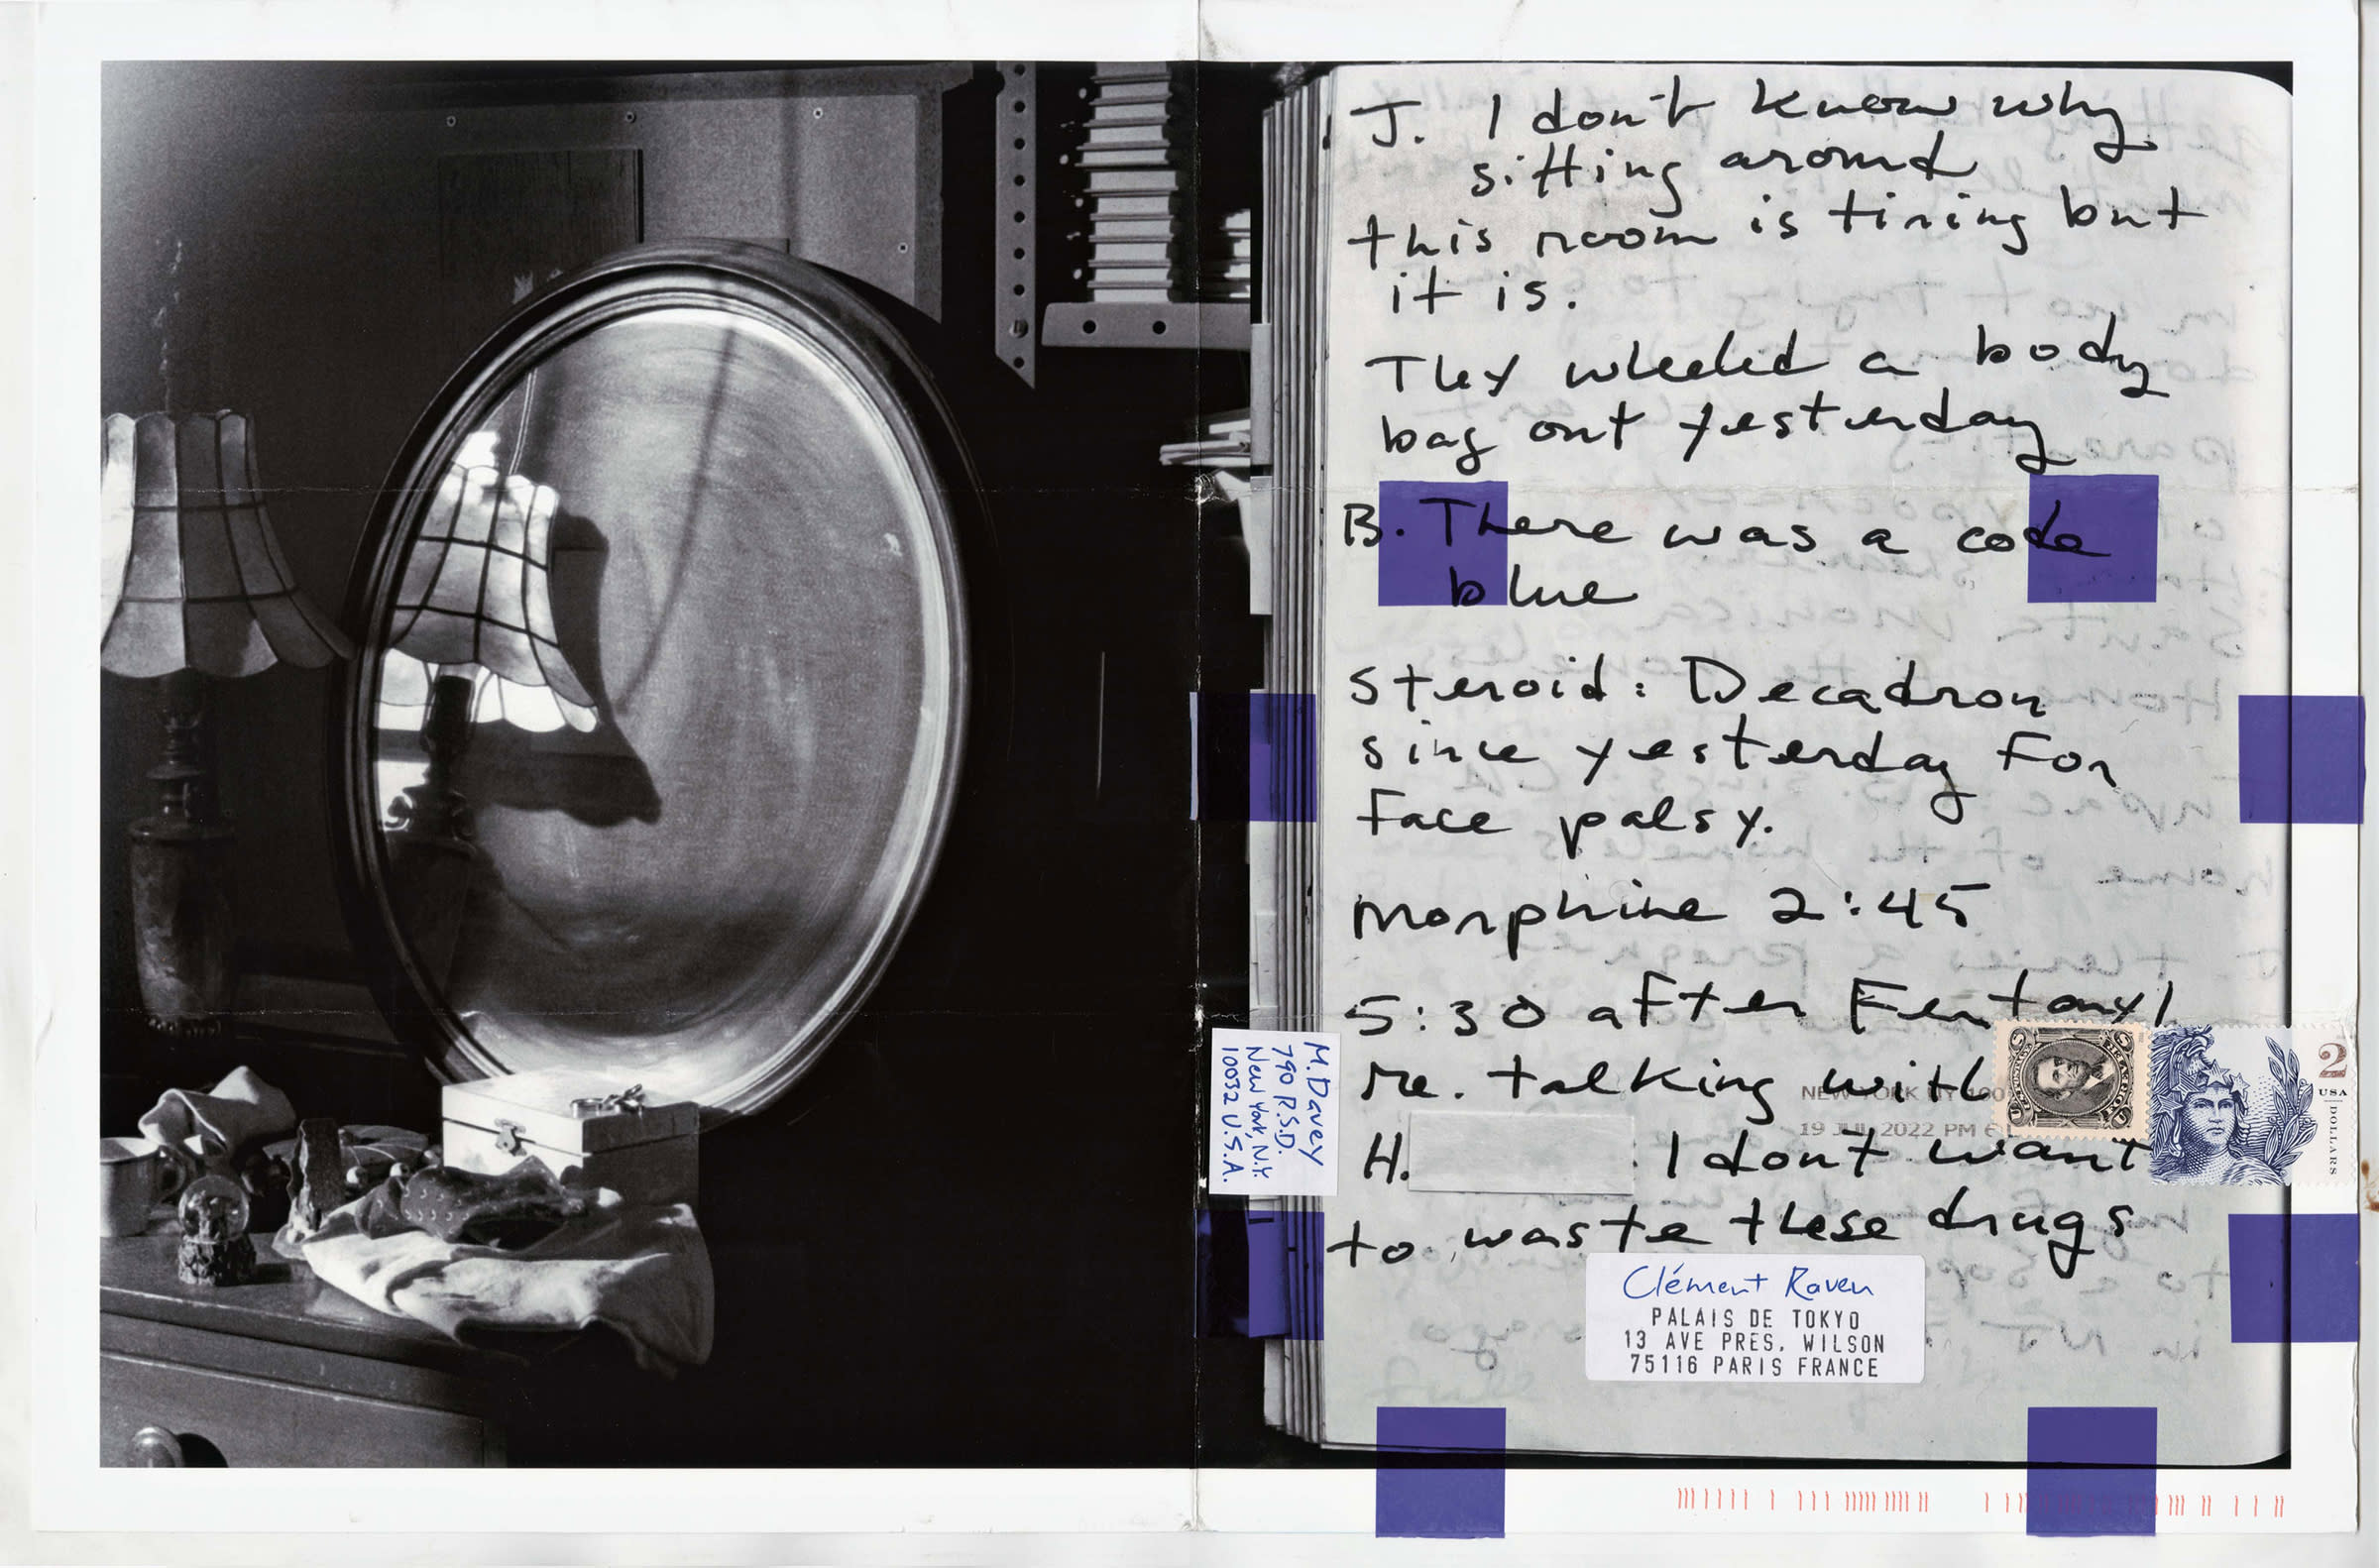 J. I don't know why
sitting around
this room is tiring but
it is.
They wheeled a body
bag out yesterday
B. There was a code
blue
Steroid: Decadron
since yesterday for
face palsy.
Morphine 2:45
5:30 after Fentanyl
re. talking with
H. . I don't want
to waste these drugs
M. Davey
790 R.S.D.
New York, N.Y.
10032 U.S.A.
NEW YORK NY 100
19 JUL 2022 PM 6
2
USA
DOLLARS
Clément Raven
PALAIS DE TOKYO
13 AVE PRES. WILSON
75116 PARIS FRANCE